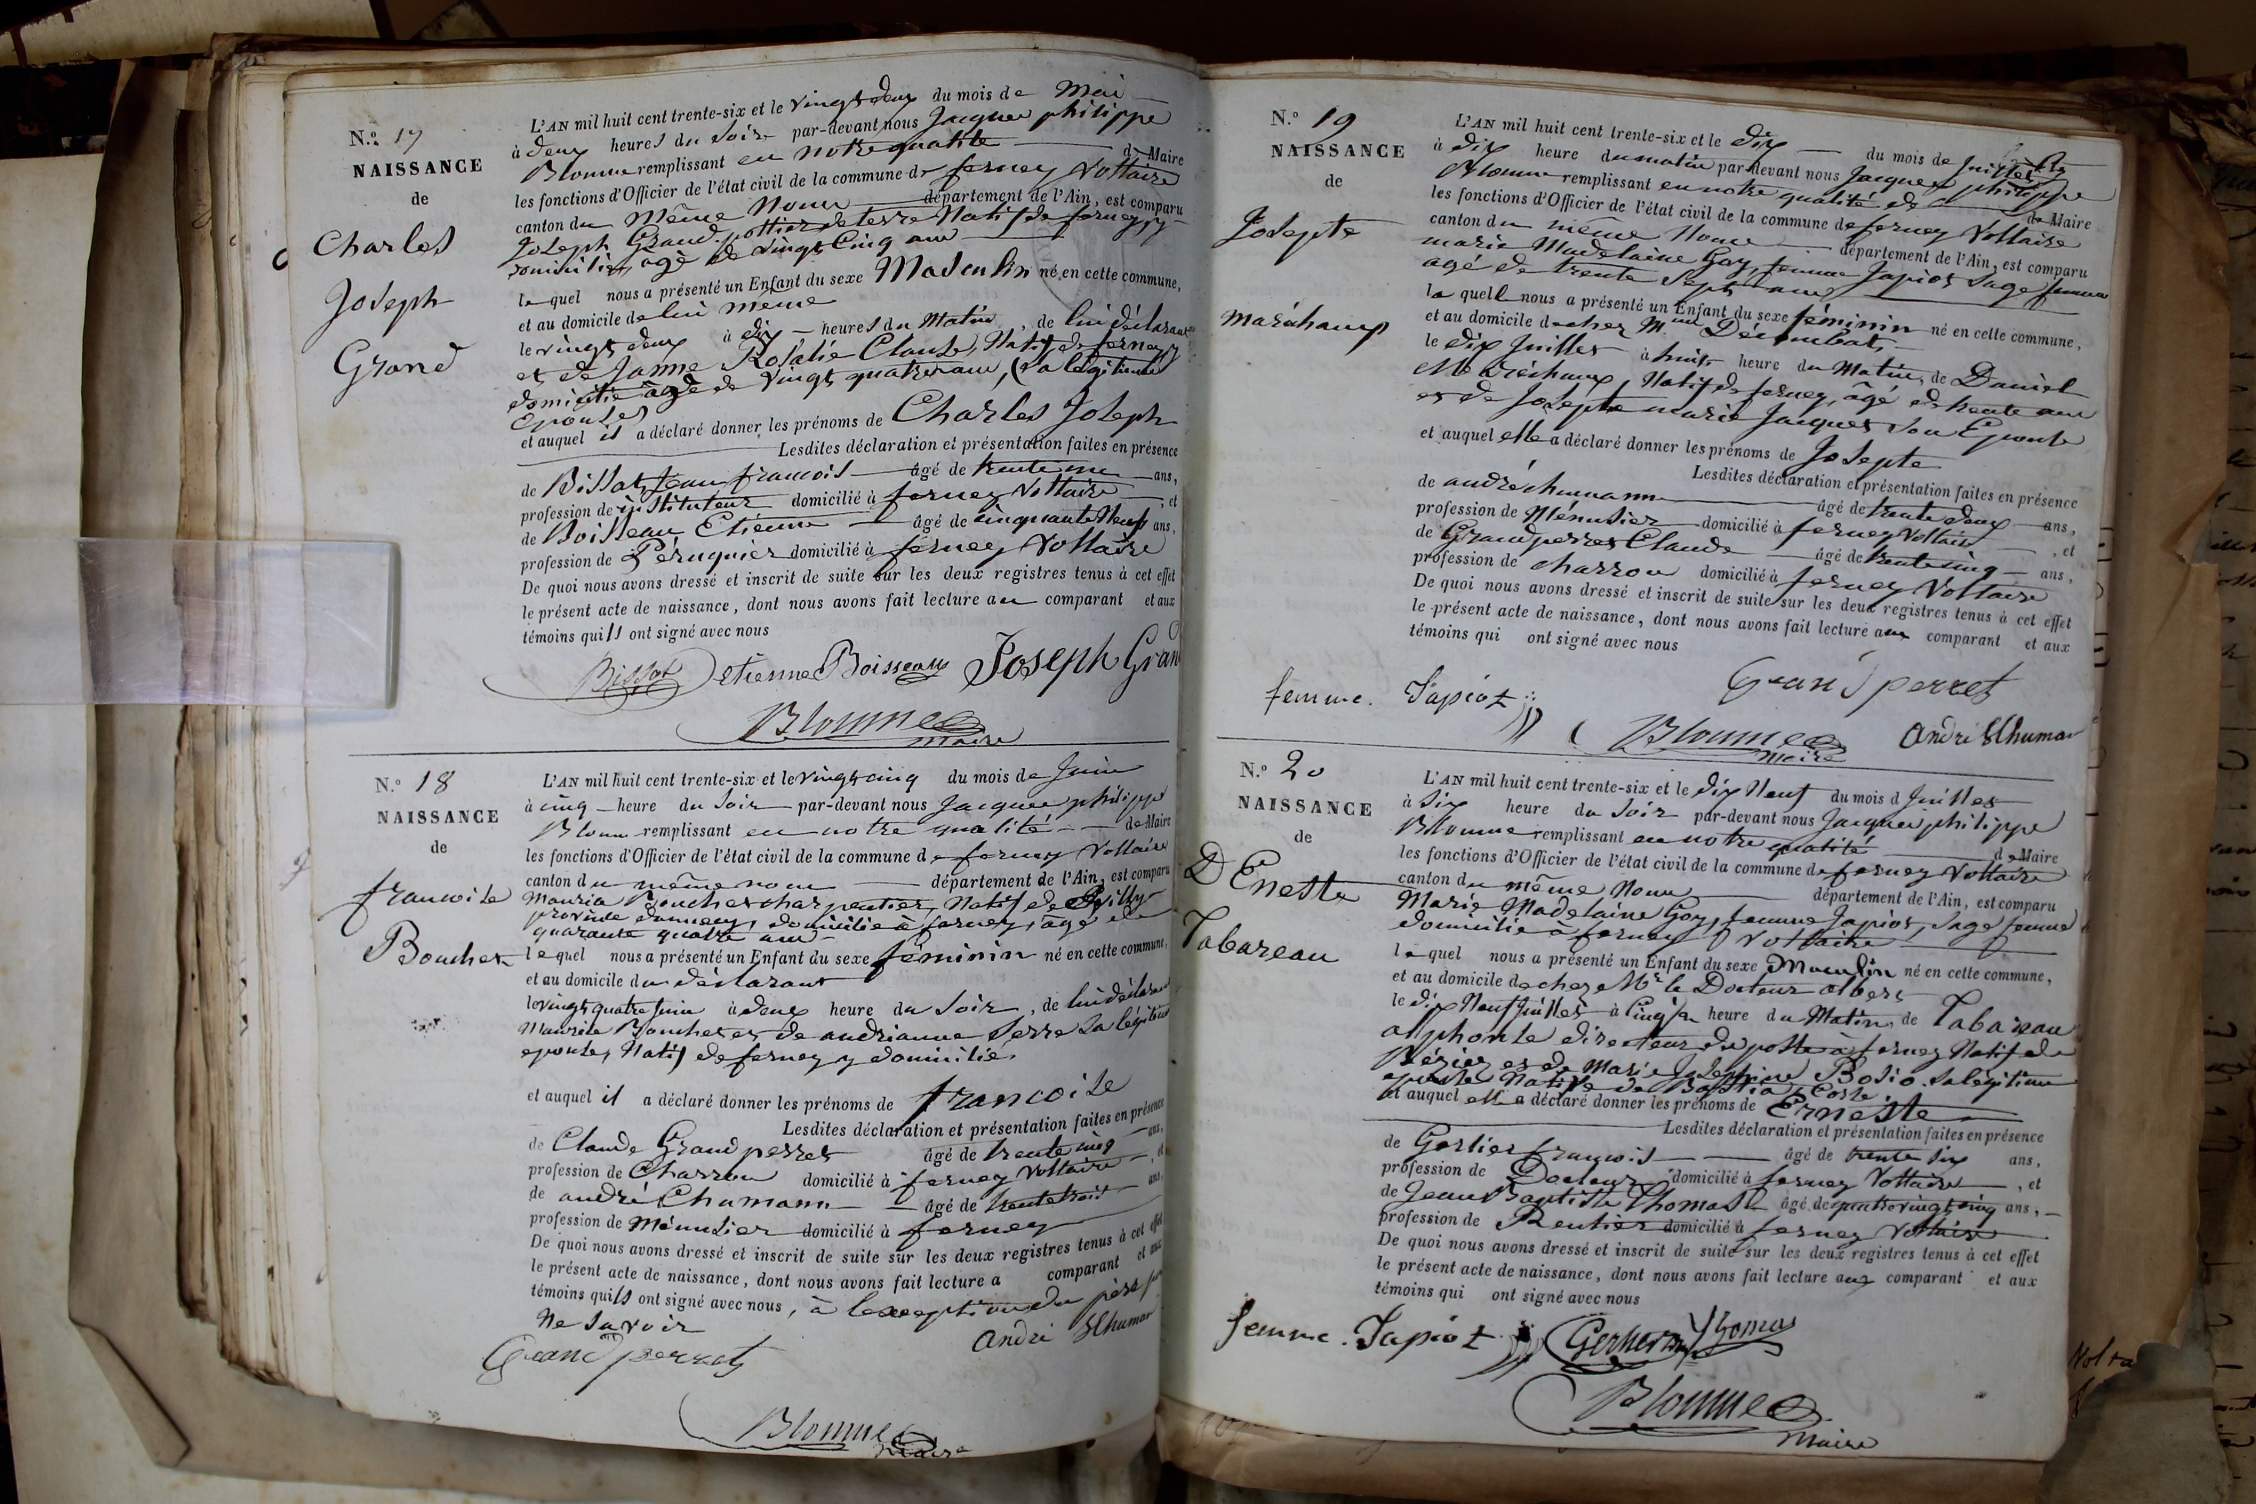 N.º 17
NAISSANCE
de
Charles
Joseph
Grand
L'AN mil huit cent trente-six et le vingt deux du mois de Mai
à deux heures du Soir par-devant nous Jacques philippe
Blonme remplissant en notre qualité de Maire
les fonctions d'Officier de l'état civil de la commune de ferney Voltaire
canton du Même Nom département de l'Ain, est comparu
Joseph Grand pottier de terre Natif de ferney y
domicilié, agé de vingt Cinq ans
lequel nous a présenté un Enfant du sexe Masculin né en cette commune,
et au domicile de lui même
le vingt deux à dix heures du Matin, de lui déclarant
et de Janne Rosalie Claude, Natif de ferney y
domicilié âgé de vingt quatre ans, (sa légitime
Epouse)
et auquel il a déclaré donner les prénoms de Charles Joseph
Lesdites déclaration et présentation faites en présence
de Bissat Jean francois âgé de trente ans,
profession de instituteur domicilié à ferney Voltaire, et
de Boisseau Etienne âgé de cinquante Neuf ans,
profession de Péruquier domicilié à ferney Voltaire
De quoi nous avons dressé et inscrit de suite sur les deux registres tenus à cet effet
le présent acte de naissance, dont nous avons fait lecture au comparant et aux
témoins qui ils ont signé avec nous
Bissat etienne Boisseau Joseph Gran
Blonme
maire
N.º 18
NAISSANCE
de
francoise
Bouchet
L'AN mil huit cent trente-six et le vingt cinq du mois de Juin
à cinq heure du Soir par-devant nous Jacques philippe
Blonme remplissant en notre qualité de Maire
les fonctions d'Officier de l'état civil de la commune de ferney Voltaire
canton du même nom département de l'Ain, est comparu
Bouchet charpentier, Natif de
province domicilié à ferney, âgé de
quarante quatre ans
lequel nous a présenté un Enfant du sexe féminin né en cette commune,
et au domicile du déclarant
le vingt quatre Juin à deux heure du Soir, de lui déclarant
Bouchet et de andrianne Serre sa légitime
epouse, Natif de ferney y domicilié.
et auquel il a déclaré donner les prénoms de francoise
Lesdites déclaration et présentation faites en présence
de Claude Grandperret âgé de trente cinq ans,
profession de Charron domicilié à ferney Voltaire, et
de andré Chumann âgé de trente trois ans,
profession de Ménusier domicilié à ferney
De quoi nous avons dressé et inscrit de suite sur les deux registres tenus à cet effet
le présent acte de naissance, dont nous avons fait lecture a comparant et aux
témoins qui ils ont signé avec nous, à lexception du père pour
Ne savoir
Grandperret André Shuman
Blonme
maire
N.º 19
NAISSANCE
de
Josepte
Maréchaux
L'AN mil huit cent trente-six et le dix du mois de Juillet
à dix heure du matin par-devant nous Jacques philippe
Blonme remplissant en notre qualité de de Maire
les fonctions d'Officier de l'état civil de la commune de ferney Voltaire
canton du même Nom département de l'Ain, est comparu
marie Madelaine Goy, femme Japiot Sage femme
agé de trente Sept ans
laquelle nous a présenté un Enfant du sexe féminin né en cette commune,
et au domicile de chez M.me Décombat,
le dix Juillet à huit heure du Matin, de Daniel
Maréchaux, Natif de ferney, âgé de trente ans
et de Josephte marie Jacques son Epouse
et auquel elle a déclaré donner les prénoms de Josepte
Lesdites déclaration et présentation faites en présence
de andré chumann âgé de trente deux ans,
profession de Ménusier domicilié à ferney Voltaire, et
de Grandperret Claude âgé de trente cinq ans,
profession de charron domicilié à ferney Voltaire
De quoi nous avons dressé et inscrit de suite sur les deux registres tenus à cet effet
le présent acte de naissance, dont nous avons fait lecture aux comparant et aux
témoins qui ont signé avec nous
Grandperret
femme. Japiot
Blonme André Shuman
maire
N.º 20
NAISSANCE
de
D Eneste
Tabareau
L'AN mil huit cent trente-six et le dix Neuf du mois d Juillet
à Six heure du Soir par-devant nous Jacques philippe
Blonme remplissant en notre qualité de Maire
les fonctions d'Officier de l'état civil de la commune de ferney Voltaire
canton du même Nom département de l'Ain, est comparu
Marie Madelaine Goy, femme Japiot, Sage femme
domicilié à ferney Voltaire
lequel nous a présenté un Enfant du sexe né en cette commune,
et au domicile de chez Mr le Docteur albert
le dix Neuf Juillet à Cinq heure du Matin, de Tabareau
alphonse directeur de poste à ferney Natif de
Bézier et de Marie Joséphine Bosio. sa légitime
epouse Native de Bastia Corse.
et auquel elle a déclaré donner les prénoms de Erneste
Lesdites déclaration et présentation faites en présence
de Gerlier francois âgé de trente six ans,
profession de Docteur domicilié à ferney Voltaire, et
de Jean Baptiste Thomas âgé de quatrevingt cinq ans,
profession de Rentier domicilié à ferney Voltaire
De quoi nous avons dressé et inscrit de suite sur les deux registres tenus à cet effet
le présent acte de naissance, dont nous avons fait lecture aux comparant et aux
témoins qui ont signé avec nous
femme. Japiot Thomas
Blonme
maire